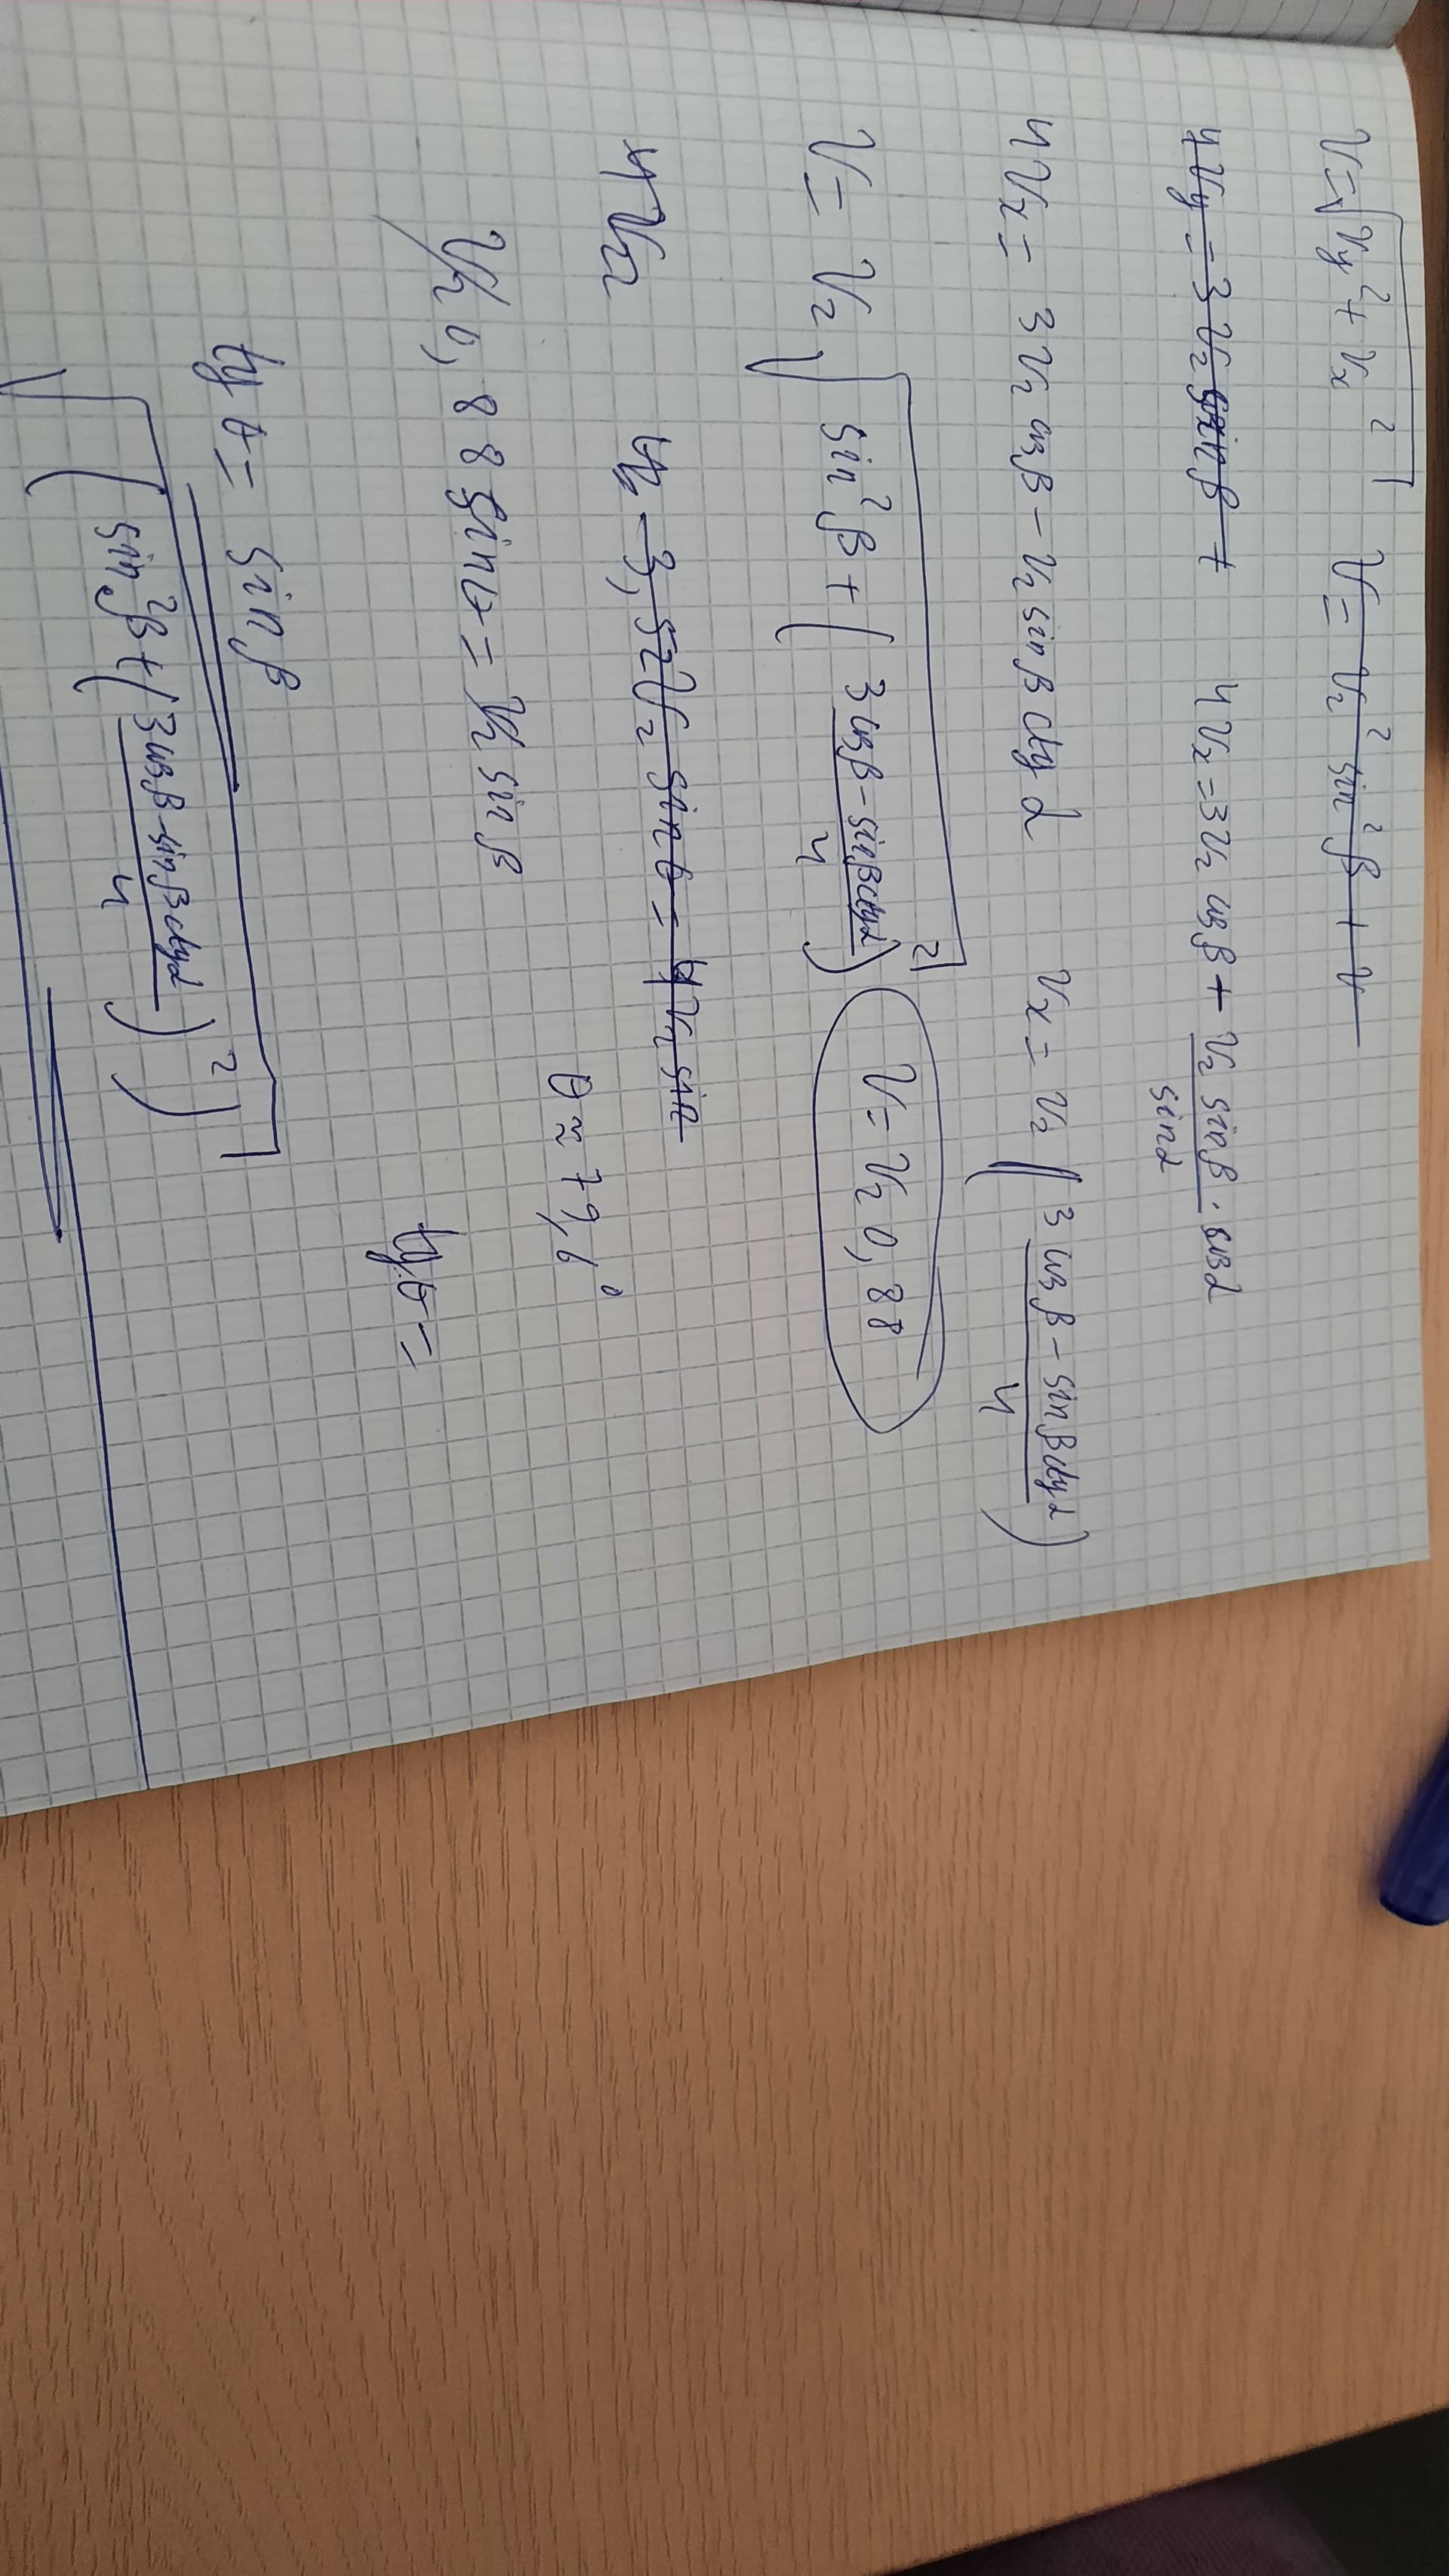 V = √(Vy² + Vx²) V = V₂² sin²β + V
4Vy = 3V₂ sinβ + 4Vx = 3V₂ cosβ + V₂ sinβ / sinα · cosα
4Vx = 3V₂ cosβ - V₂ sinβ ctg α Vx = V₂ (3 cosβ - sinβ ctgα / 4)
V = V₂ √(sin²β + (3 cosβ - sinβ ctgα / 4)²) V = V₂ 0,88
4V₂ 3,52V₂ sinθ = 4V₂ sin
θ ≈ 79,6°
V₂ 0,88 sinθ = V₂ sinβ
tgθ =
tg θ = sinβ
√( sin²β + (3 cosβ - sinβ ctgα / 4)² )